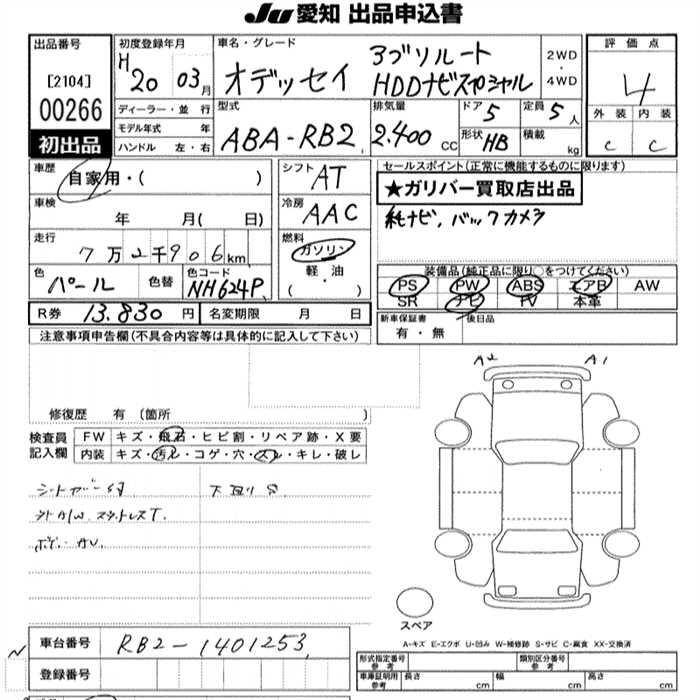 JU 愛知 出品申込書
出品番号
[2104]
00266
初出品
初度登録年月
H 20 03月
ディーラー・並行
モデル年式 年
ハンドル 左・右
車名・グレード
オデッセイ
アブソルート
HDDナビスペシャル
2WD
・
4WD
型式
ABA-RB2
排気量
2.400 CC
ドア 5
形状 HB
定員 5人
積載 kg
評価点
4
外装 内装
C C
車歴
自家用・( )
車検
年 月( 日)
走行
7万2千906km
色
パール
色替
色コード
NH624P
シフト AT
冷房
AAC
燃料
ガソリン
軽・油
・( )
セールスポイント(正常に機能するものに限ります)
★ガリバー買取店出品
純ナビ, バックカメラ
装備品(純正品に限り○をつけてください)
PS PW ABS エアB AW
SR ナビ TV 本革
新車保証書
有・無
後日品
R券 13.830円
名変期限 月 日
注意事項申告欄(不具合内容等は具体的に記入して下さい)
修復歴 有 (箇所 )
検査員
記入欄
FW キズ・飛石・ヒビ割・リペア跡・X要
内装 キズ・汚レ・コゲ・穴・スレ・キレ・破レ
A2 A1
スペア
A-キズ E-エクボ U-凹み W-補修跡 S-サビ C-腐食 XX-交換済
車台番号 RB2-1401253
登録番号
形式指定番号
参考
類別区分番号
参考
車庫証明用
参考
長さ cm 幅 cm 高さ cm